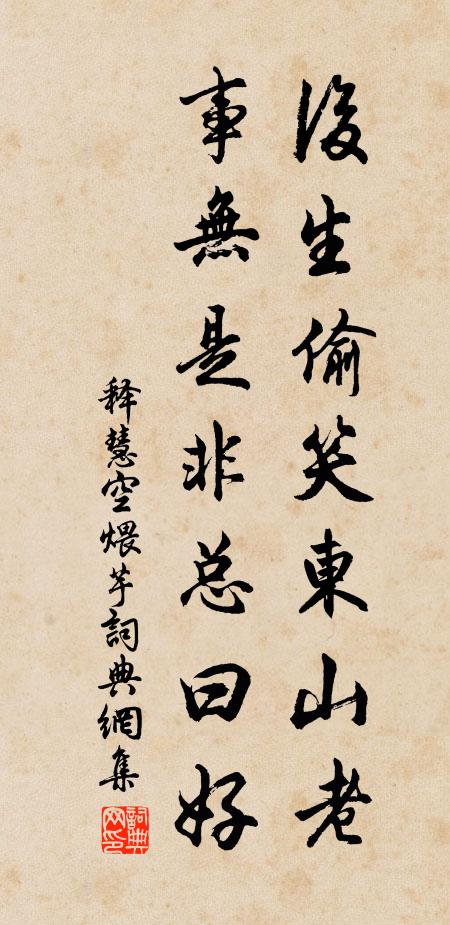 後生偷笑東山老
事無是非总曰好
释慧空煨芋詞典網集
詞典
网印